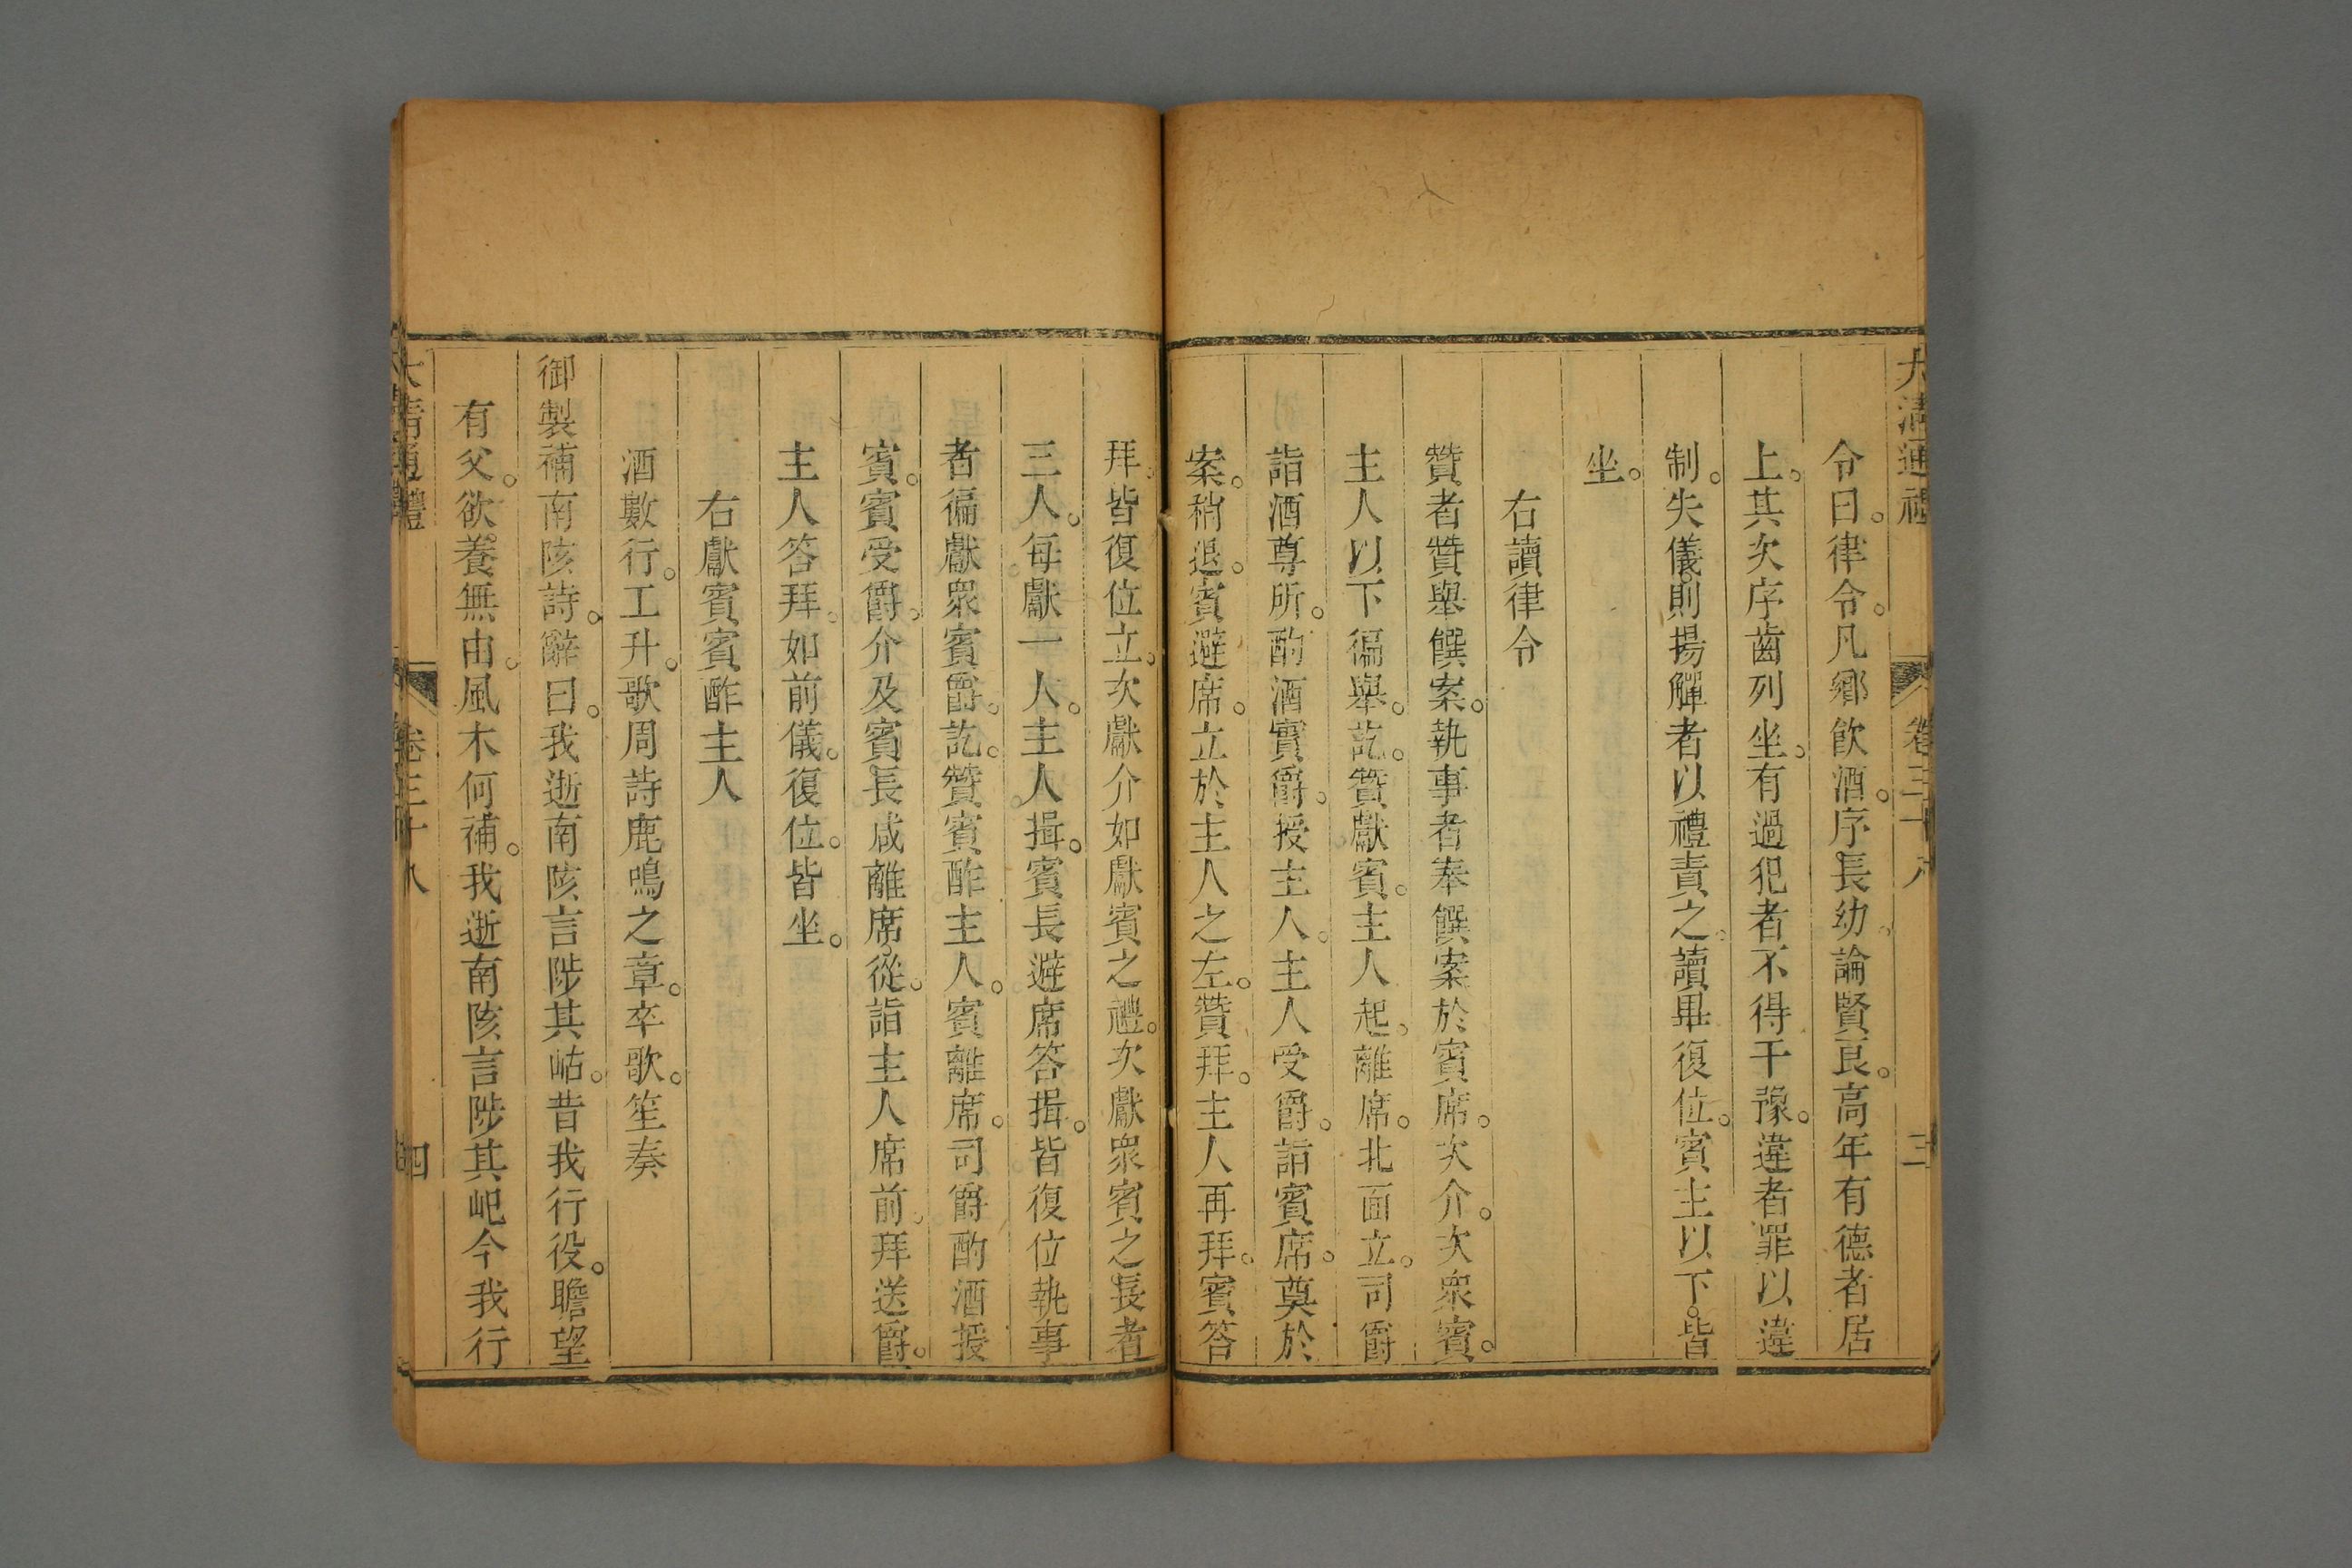 大清通禮 卷三十八 三
令曰。律令。凡鄉飲酒。序長幼。論賢良。高年有德者居
上。其次序齒列坐。有過犯者不得干豫。違者罪以違
制。失儀。則揚觶者以禮責之。讀畢復位。賓主以下。皆
坐。
右讀律令
贊者贊舉饌案。執事者奉饌案於賓席。次介。次衆賓。
主人以下徧舉。訖。贊獻賓。主人起。離席。北面立。司爵
詣酒尊所。酌酒實爵。授主人。主人受爵。詣賓席。奠於
案。稍退。賓避席。立於主人之左。贊拜。主人再拜。賓答
拜。皆復位立。次獻介如獻賓之禮。次獻衆賓之長者
三人。每獻一人。主人揖。賓長避席答揖。皆復位執事
者徧獻衆賓爵。訖。贊賓酢主人。賓離席。司爵酌酒授
賓。賓受爵。介及賓長咸離席。從。詣主人席前。拜送爵。
主人答拜。如前儀。復位。皆坐。
右獻賓賓酢主人
酒數行。工升。歌周詩鹿鳴之章。卒歌。笙奏
御製補南陔詩。辭曰。我逝南陔言陟其岵。昔我行役。瞻望
有父。欲養無由。風木何補。我逝南陔言陟其屺今我行
大清通禮 卷三十八 四